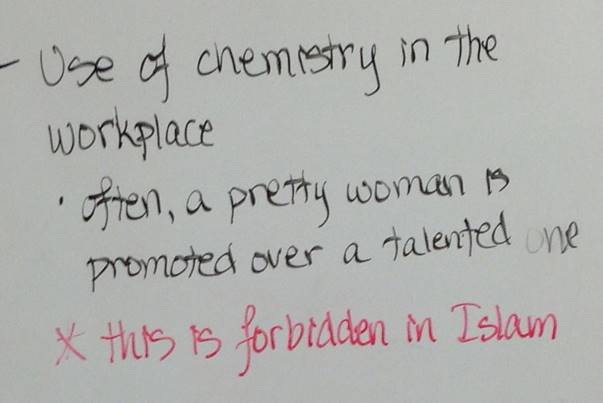 - Use of chemistry in the
workplace
· often, a pretty woman is
promoted over a talented one
* this is forbidden in Islam